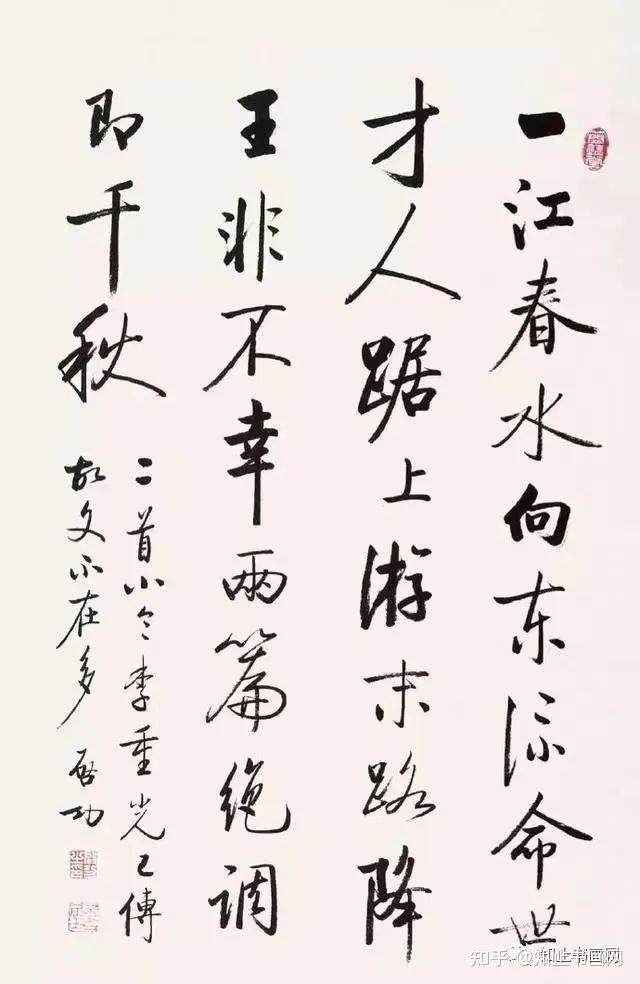 一江春水向东流命世
才人踞上游末路降
王非不幸两篇绝调
即千秋
二首小令李重光已傳
故文不在多 启功
知乎 @知止书画网
知止书画网